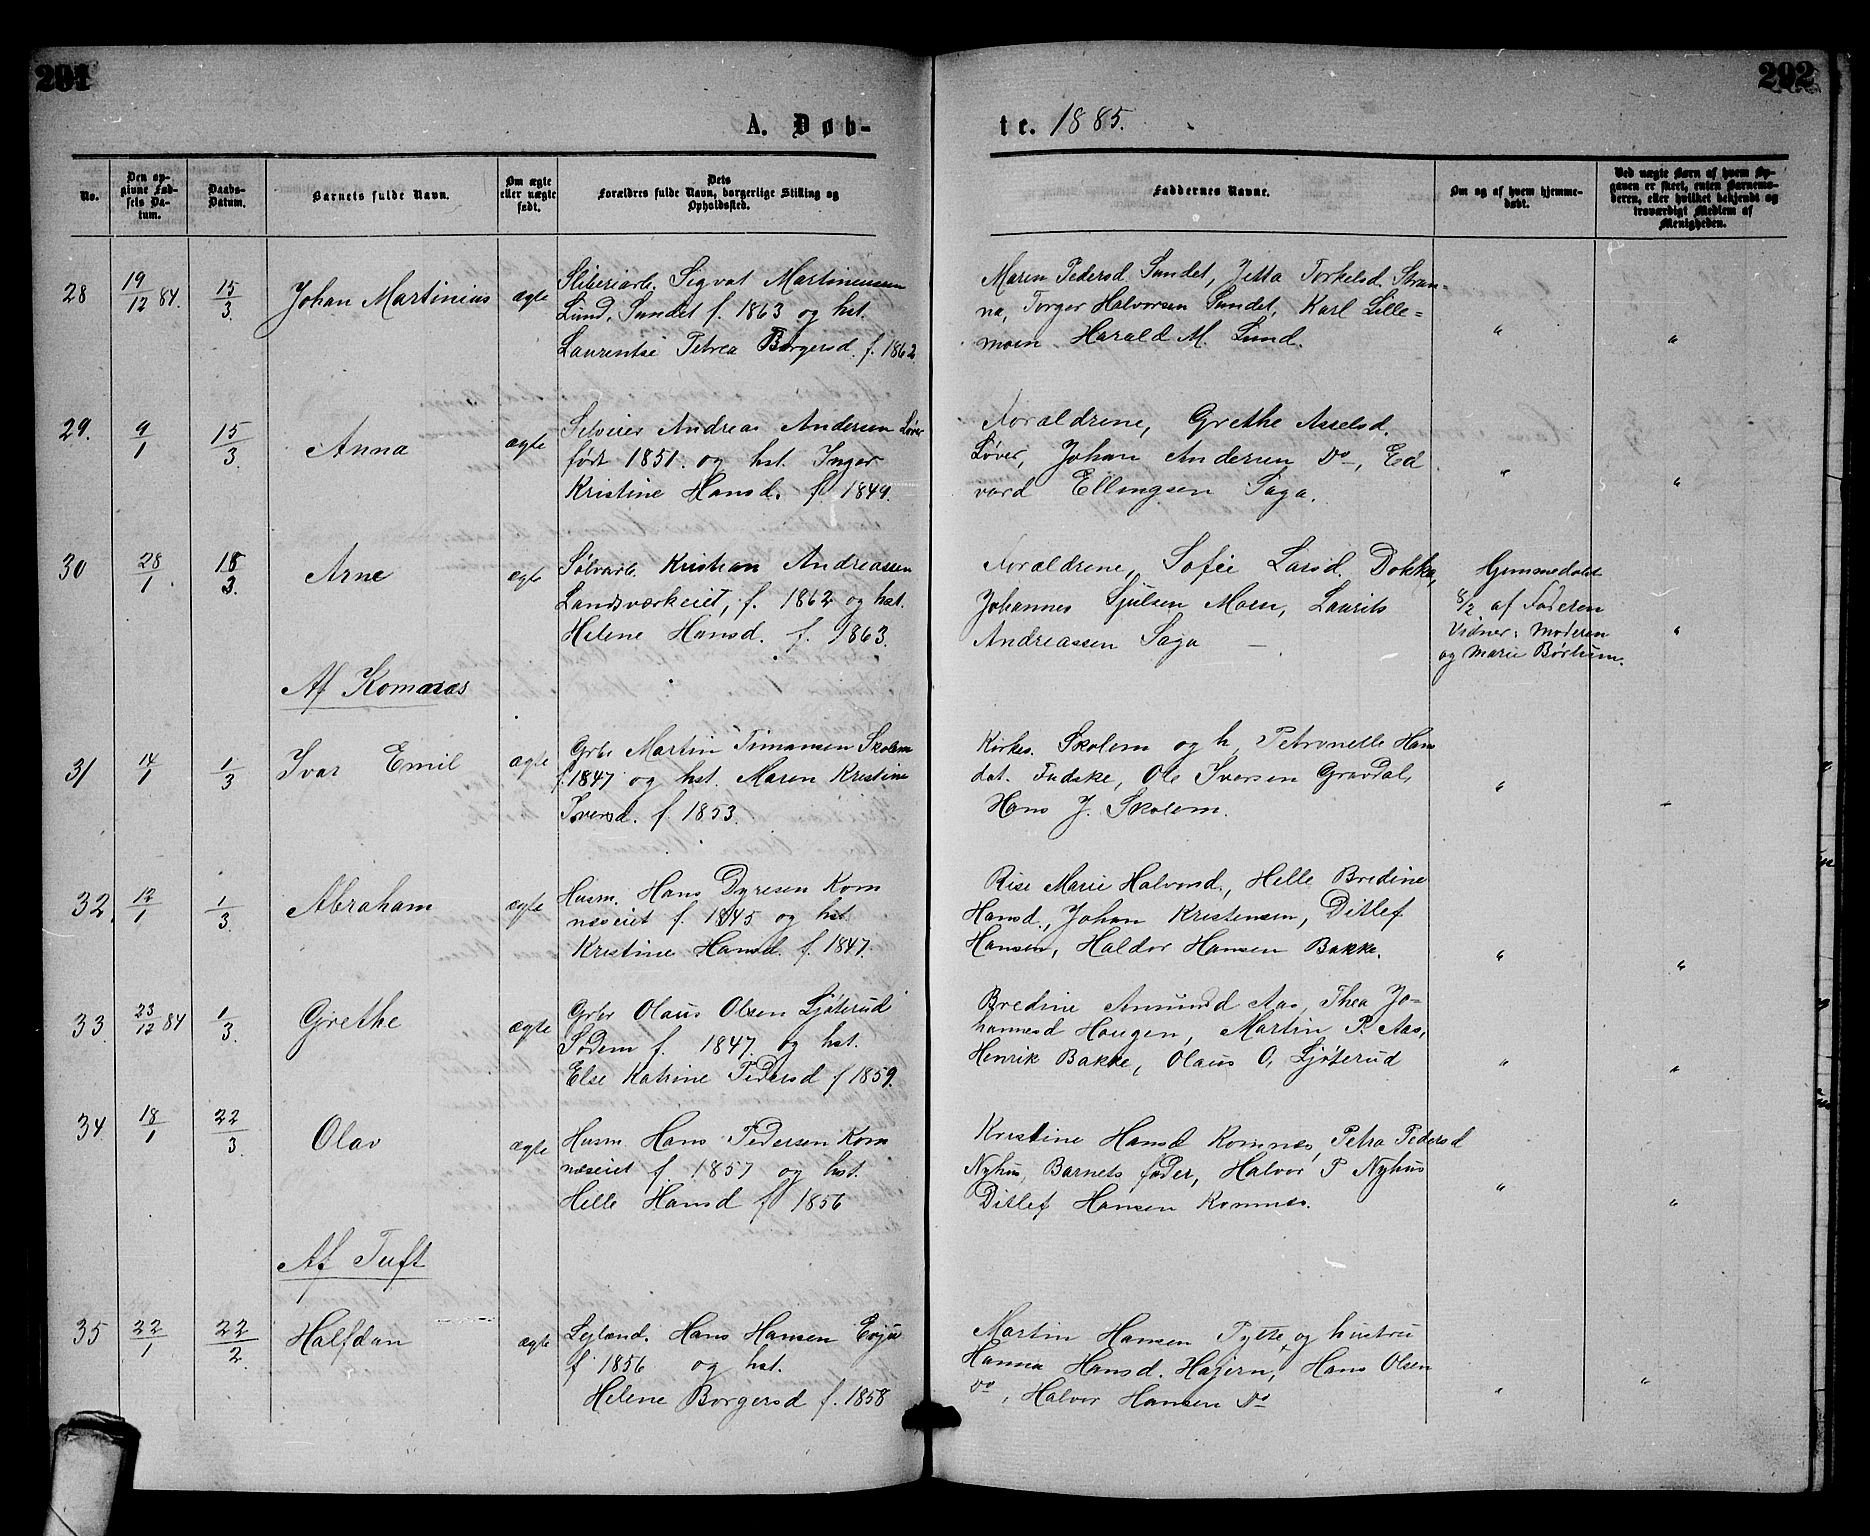 291
292
A. Døb-
te. 1885.
No.
Den op-
givne Fød-
sels Da-
tum.
Daabs-
Datum.
Barnets fulde Navn.
Om ægte
eller uægte
født.
Dets
Forældres fulde Navn, borgerlige Stilling og
Opholdssted.
Faddernes Navne.
Om og af hvem hjemme-
døbt.
Ved uægte Børn af hvem Op-
gaven er skeet, enten Barnemo-
deren, eller hvilket bekjendt og
troværdigt Medlem af
Menigheden.
28
19/12 84.
15/3.
Johan Martinius
ægte
Sliberiarb. Sigvat Martinussen
Lund, Sundet f. 1863 og hst.
Laurentse Petrea Borgersd. f. 1862
Maren Pedersd. Sundet, Jetta Torkelsd. Stran-
na, Torger Halvorsen Sundet, Karl Lille=
moen Harald M. Lund.
"
"
29.
9/1
15/3.
Anna
ægte
Selveier Andreas Andersen Løver
født 1851. og hst. Inger
Kristine Hansd. f. 1849.
Forældrene, Grethe Asselsd.
Løver, Johan Andersen Do, Ed
vard Ellingsen Saga.
"
"
30
28/1.
15/3.
Arne
ægte
Sølvarb. Kristian Andreassen
Landsværkeiet, f. 1862 og hst.
Helene Hansd. f. 1863.
Forældrene, Sofie Larsd. Dokka,
Johannes Sjulsen Moen, Laurits
Andreassen Saga —
Hjemmedøbt
8/2 af Faderen
Vidner: Moderen
og Marie Børtum.
"
Af Komnæs
31
14/1
1/3
Ivar Emil
ægte
Grbr Martin Timansen Skolem
f. 1847 og hst. Maren Kristine
Iversd. f. 1853.
Kirkes. Skolem og h. Petronelle Hans
dat. Fudske, Ole Iversen Gravdal,
Hans J. Skolem.
"
–
32.
12/1
1/3.
Abraham
ægte
Husm. Hans Dyresen Kom
næseiet f. 1845 og hst.
Kristine Hansd. f. 1847.
Rise Marie Halvorsd., Helle Bredine
Hansd., Johan Kristensen, Ditlef
Hansen, Haldor Hansen Bakke.
"
"
33.
23/12 84
1/3.
Grethe
ægte
Grbr Olaus Olsen Ljøterud
Sødem f. 1847. og hst.
Else Katrine Pedersd f 1859.
Bredine Amundd Aas, Thea Jo-
hannesd Haugen, Martin P. Aas,
Henrik Bakke, Olaus O. Ljøterud
"
"
34
18/1
22/3.
Olav
ægte
Husm. Hans Pedersen Kom
næseiet f. 1857 og hst.
Helle Hansd f 1856
Kristine Hansd Komnes, Petra Pedersd
Nyhus, Barnets fader, Halvor P Nyhus
Ditlef Hansen Komnes.
"
"
Af Tuft
35
22/1
22/2.
Halfdan
ægte
Lejlænd. Hans Hansen Evju
f 1856 og hst.
Helene Borgersd f. 1858
Martin Hansen Tytte og hustru
Hanna Hansd. Hajern, Hans Olsen
Do, Halvor Hansen Do
"
"